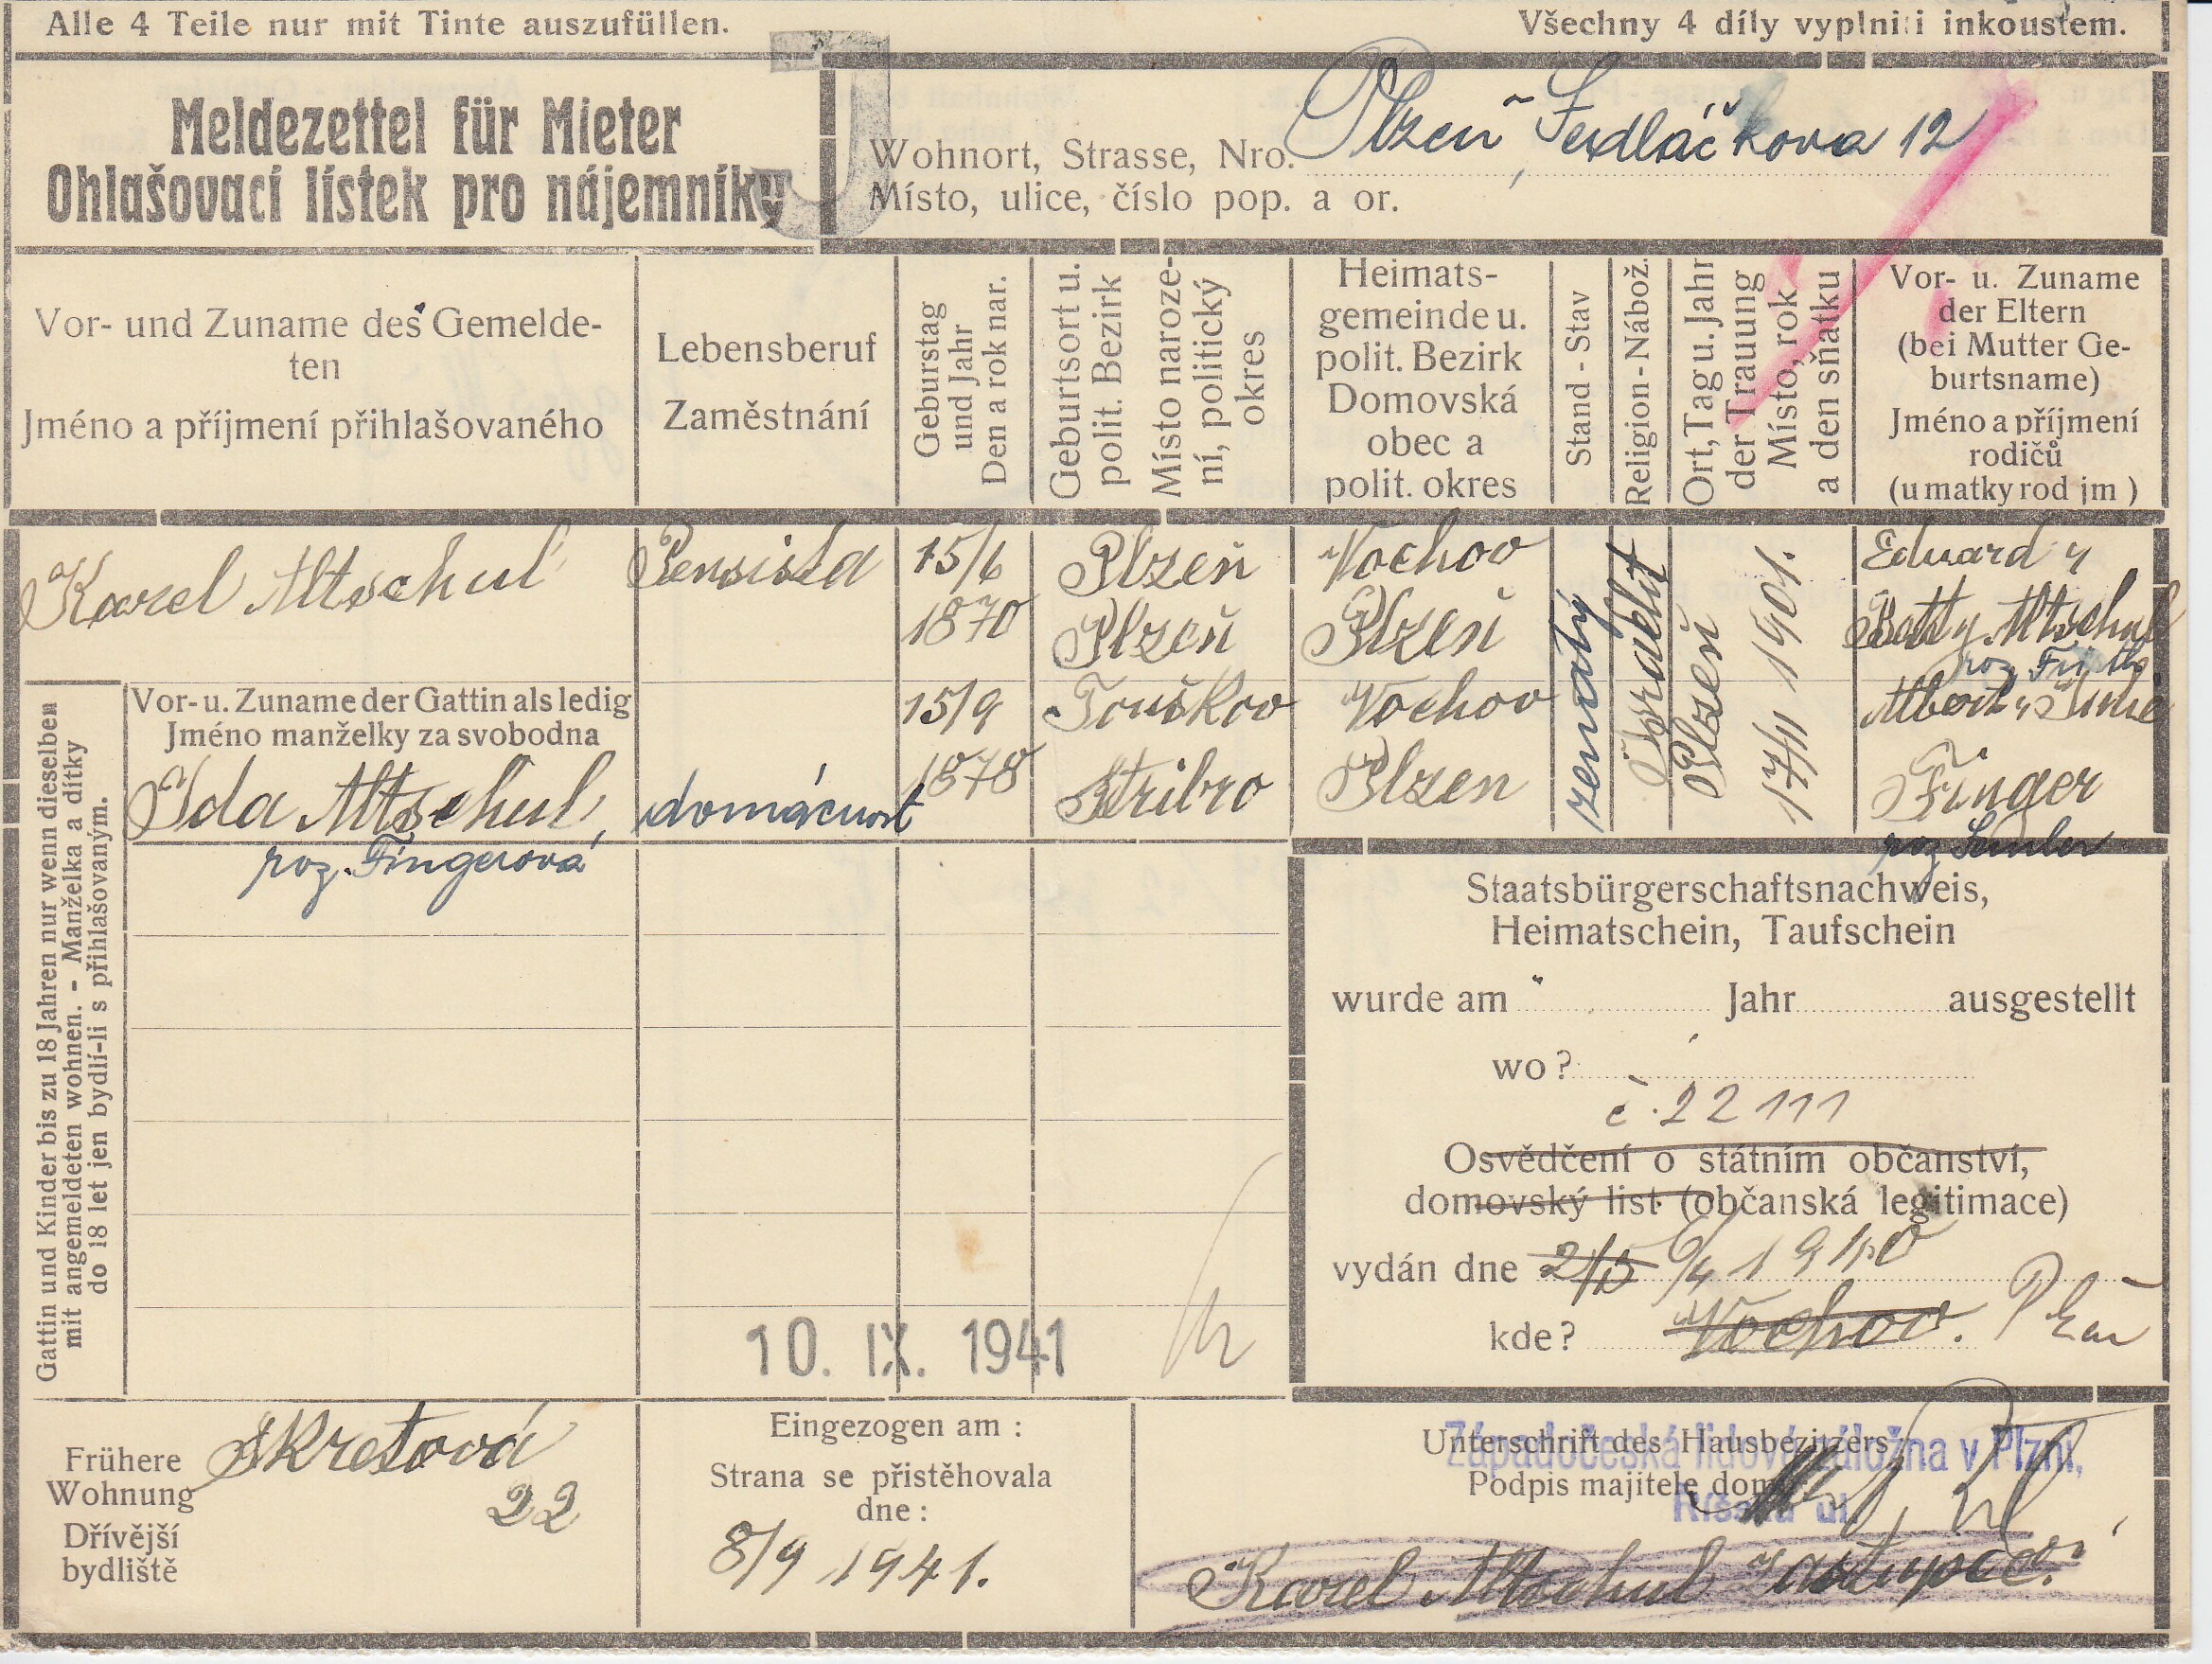 Alle 4 Teile nur mit Tinte auszufüllen.
Všechny 4 díly vyplniti inkoustem.
Meldezettel für Mieter
Ohlašovací lístek pro nájemníky
J
Wohnort, Strasse, Nro.
Plzeň, Sedláčkova 12
Místo, ulice, číslo pop. a or.
Vor- und Zuname des Gemelde-
ten
Jméno a příjmení přihlašovaného
Lebensberuf
Zaměstnání
Geburstag
und Jahr
Den a rok nar.
Geburtsort u.
polit. Bezirk
Místo naroze-
ní, politický
okres
Heimats-
gemeinde u.
polit. Bezirk
Domovská
obec a
polit. okres
Stand - Stav
Religion - Nábož.
Ort, Tag u. Jahr
der Trauung
Místo, rok
a den sňatku
Vor- u. Zuname
der Eltern
(bei Mutter Ge-
burtsname)
Jméno a příjmení
rodičů
(u matky rod jm )
Karel Altschul
Pensista
15/6
1870
Plzeň
Plzeň
Vochov
Plzeň
ženatý
Israelit
Plzeň
17/11 1901.
Eduard y
Betty Altschul
roz.
Gattin und Kinder bis zu 18 Jahren nur wenn dieselben
mit angemeldeten wohnen. - Manželka a dítky
do 18 let jen bydlí-li s přihlašovaným.
Vor- u. Zuname der Gattin als ledig
Jméno manželky za svobodna
Ida Altschul,
roz. Fingerová
domácnost
15/9
1878
Touškov
Stribro
Vochov
Plzen
Albert
Finger
roz
Staatsbürgerschaftsnachweis,
Heimatschein, Taufschein
wurde am Jahr ausgestellt
wo?
č. 22111
Osvědčení o státním občanství,
domovský list (občanská legitimace)
vydán dne 2/5 6/4 1940
kde? Vochov. Plzeň
10. IX. 1941
Frühere
Wohnung
Dřívější
bydliště
Skretová
22
Eingezogen am :
Strana se přistěhovala
dne :
8/9 1941.
Unterschrift des Hausbezitzers
Podpis majitele domu
Západočeská lidová záložna v Plzni,
Říšská ul.
Karel Altschul zástupce.